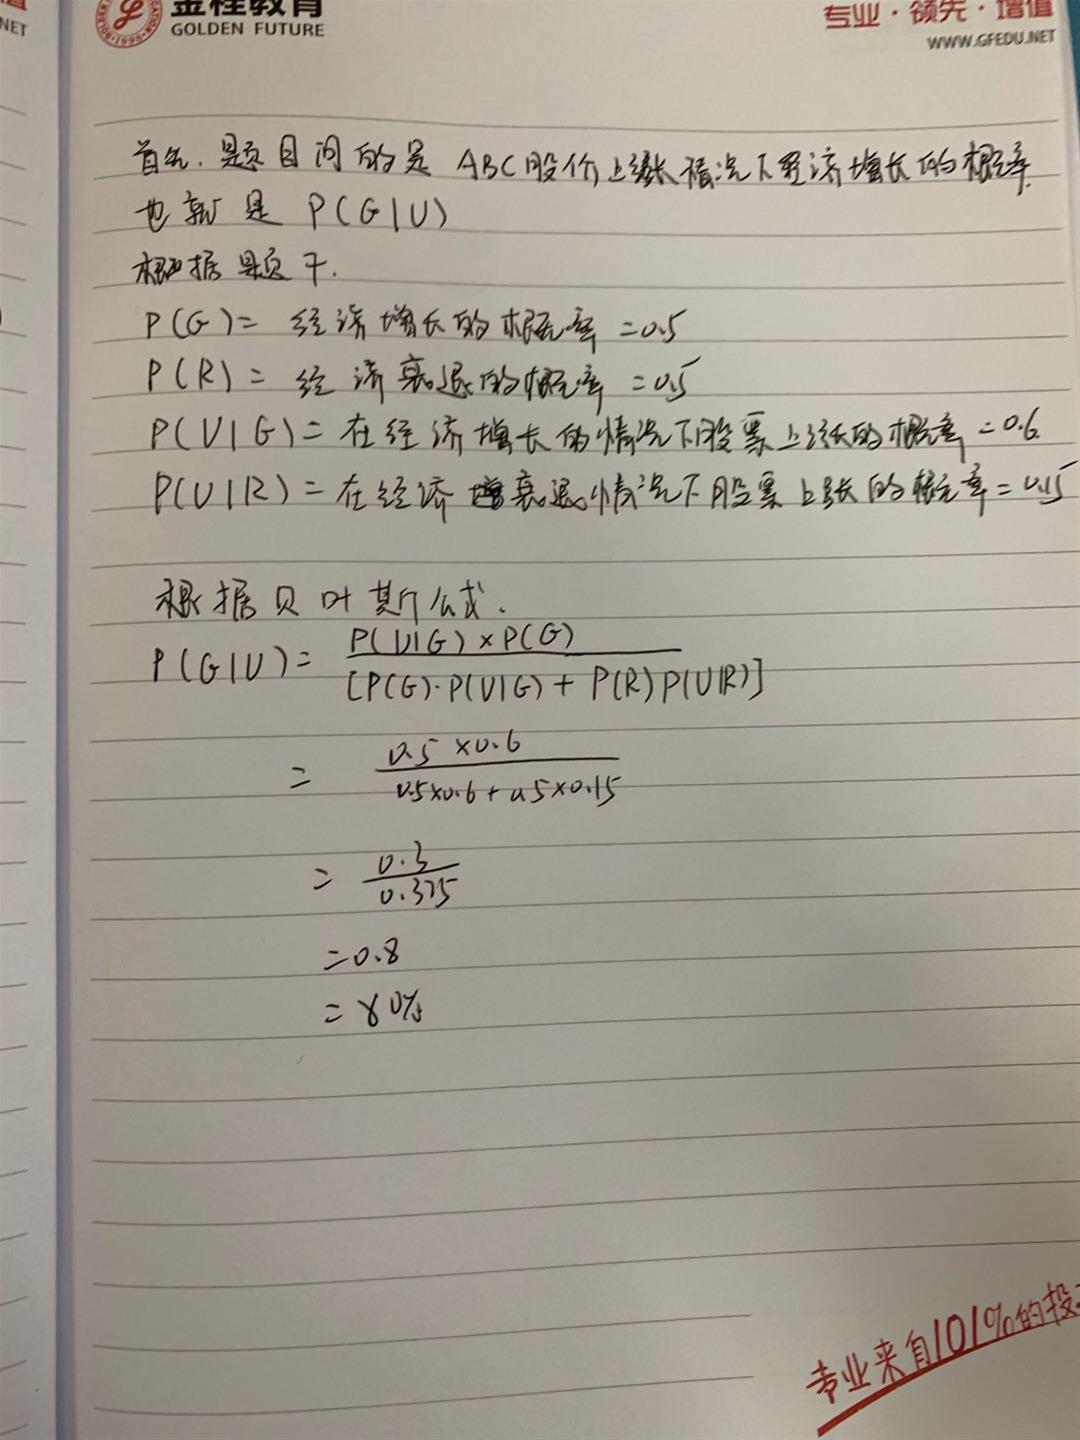 值
NET
金程教育
GOLDEN FUTURE
专业·领先·增值
WWW.GFEDU.NET
首先.题目问的是 ABC股价上涨情况下经济增长的概率.
也就是 P(G|U)
根据题干.
P(G)= 经济增长的概率=0.5
P(R)= 经济衰退的概率=0.5
P(U|G)=在经济增长的情况下股票上涨的概率=0.6
P(U|R)=在经济衰退情况下股票上涨的概率=0.15
根据贝叶斯公式.
P(G|U)= P(U|G)×P(G)
[P(G)·P(U|G)+ P(R)P(U|R)]
= 0.5×0.6
0.5×0.6+0.5×0.15
= 0.3
0.375
=0.8
=80%
专业来自101%的投